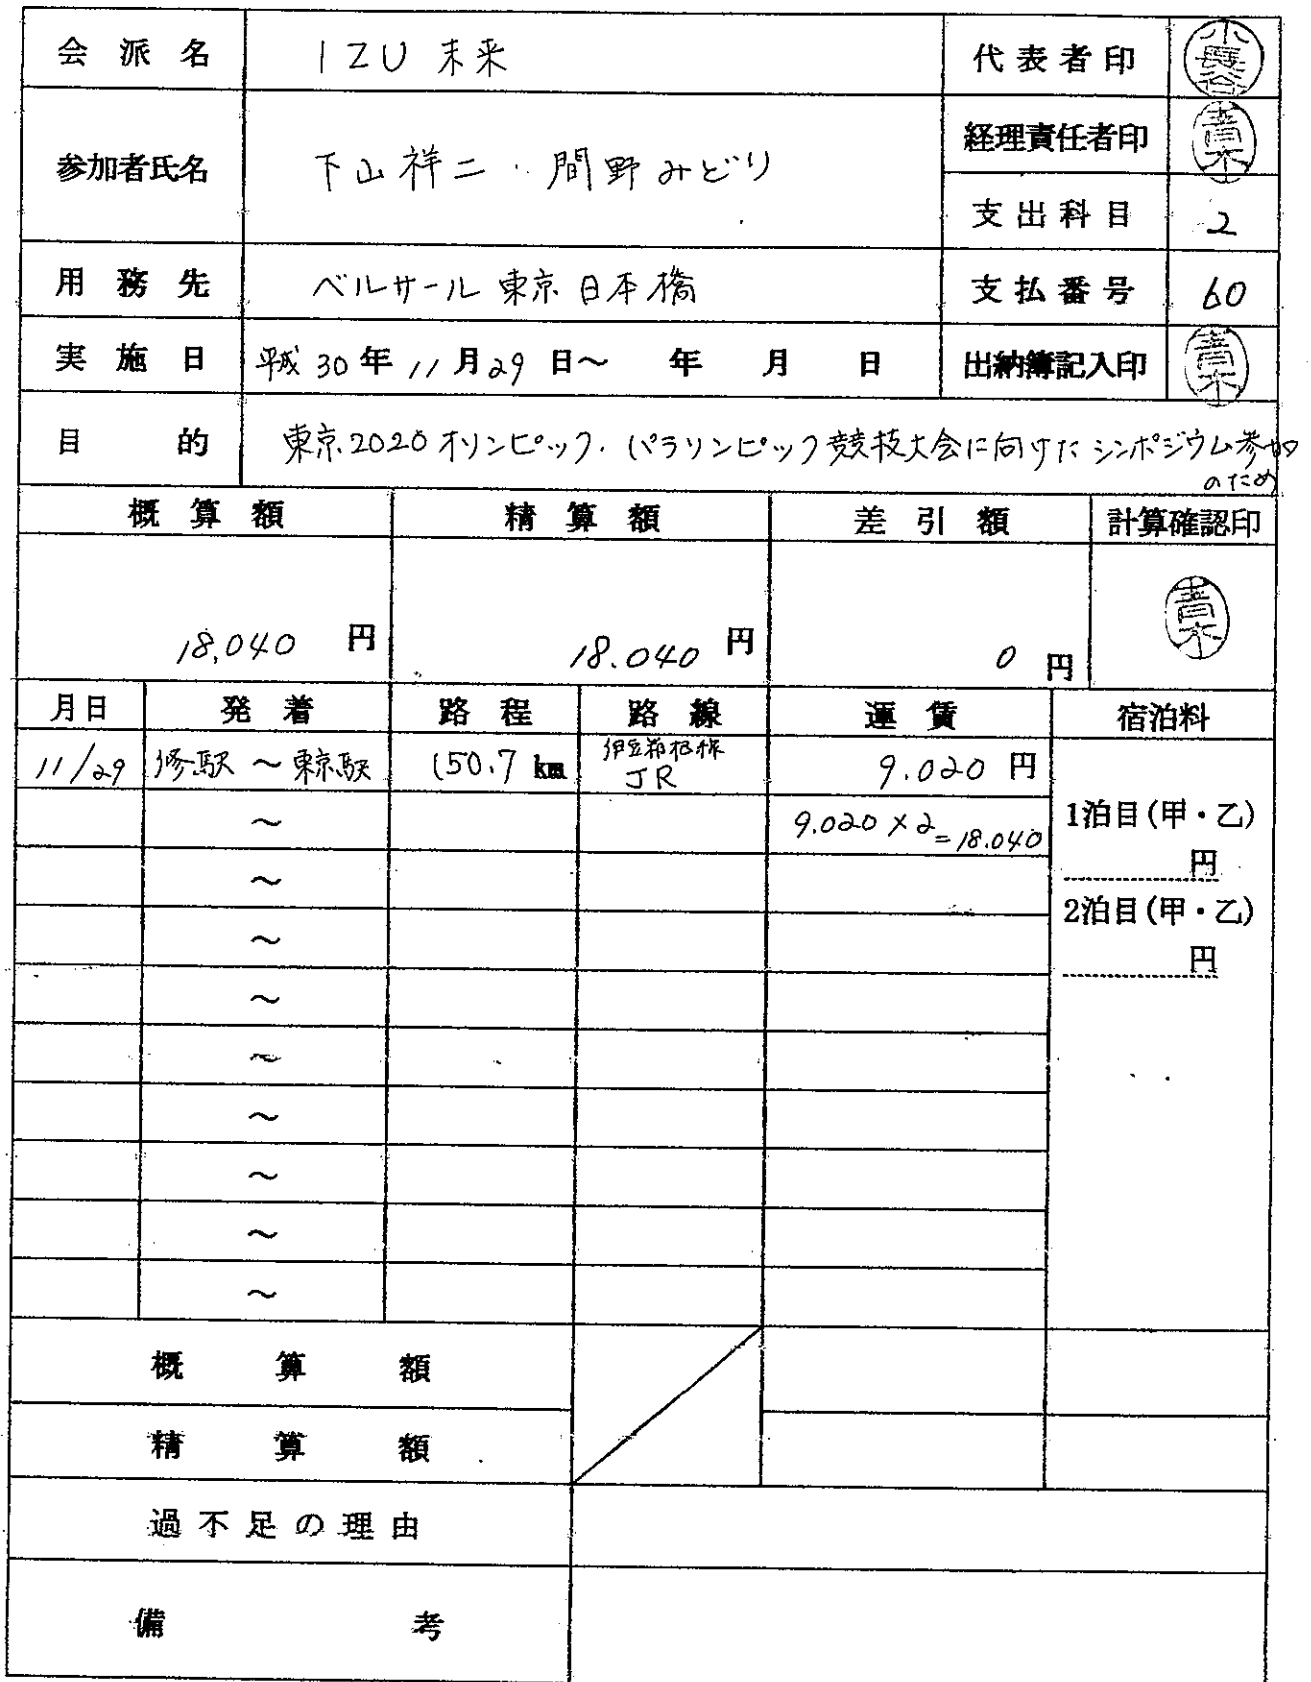 会派名 IZU未来 代表者印 小長谷
参加者氏名 下山祥二・間野みどり 経理責任者印 青木
支出科目 2
用務先 ベルサール東京日本橋 支払番号 60
実施日 平成30年11月29日〜 年 月 日 出納簿記入印 青木
目的 東京2020オリンピック・パラリンピック競技大会に向けたシンポジウム参加
のため
概算額 精算額 差引額 計算確認印
18,040円 18.040円 0円 青木
月日 発着 路程 路線 運賃 宿泊料
11/29 修駅〜東京駅 150.7km 伊豆箱根線 9.020円
JR
〜 9.020×2=18.040 1泊目(甲・乙)
〜 円
〜 2泊目(甲・乙)
〜 円
〜
〜
〜
〜
〜
概算額
精算額
過不足の理由
備考